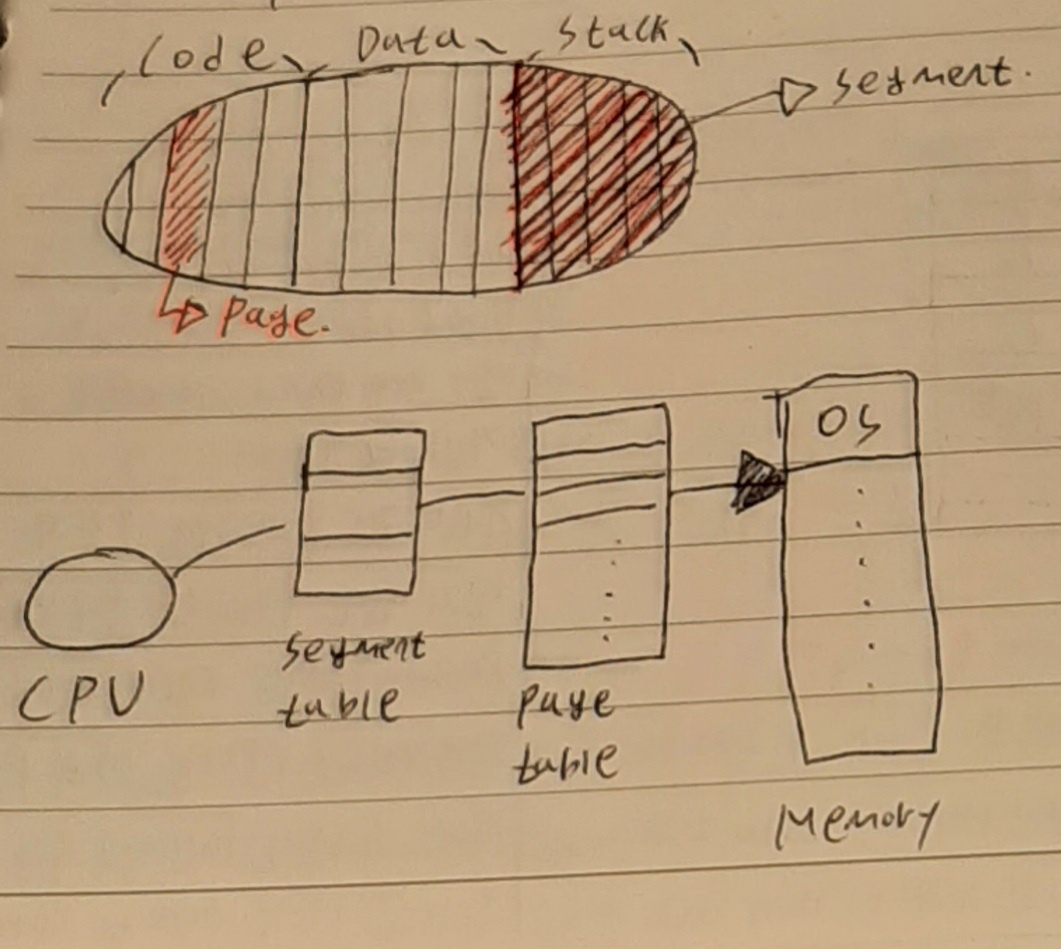 Code Data Stack
segment.
page.
OS
CPU
segment
table
page
table
Memory